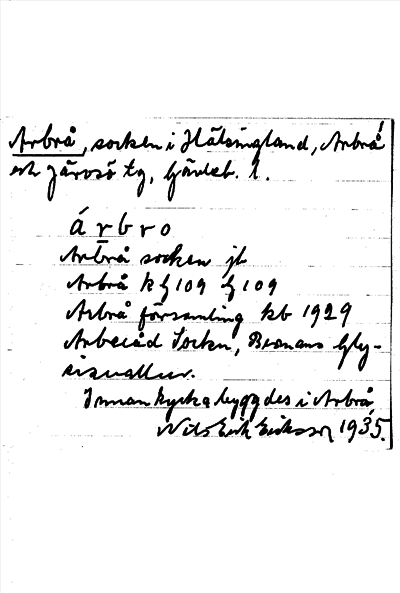 Arbrå, socken i Hälsingland, Arbrå
och Järvsö tg, Gävleb. l.
árbro
Arbrå socken jb
Arbrå kf 109 f 109
Arbrå församling kb 1929
Socken, Gly-
sisvallur.
Innan kyrka byggdes i Arbrå,
Nils Erik Eriksson 1935.